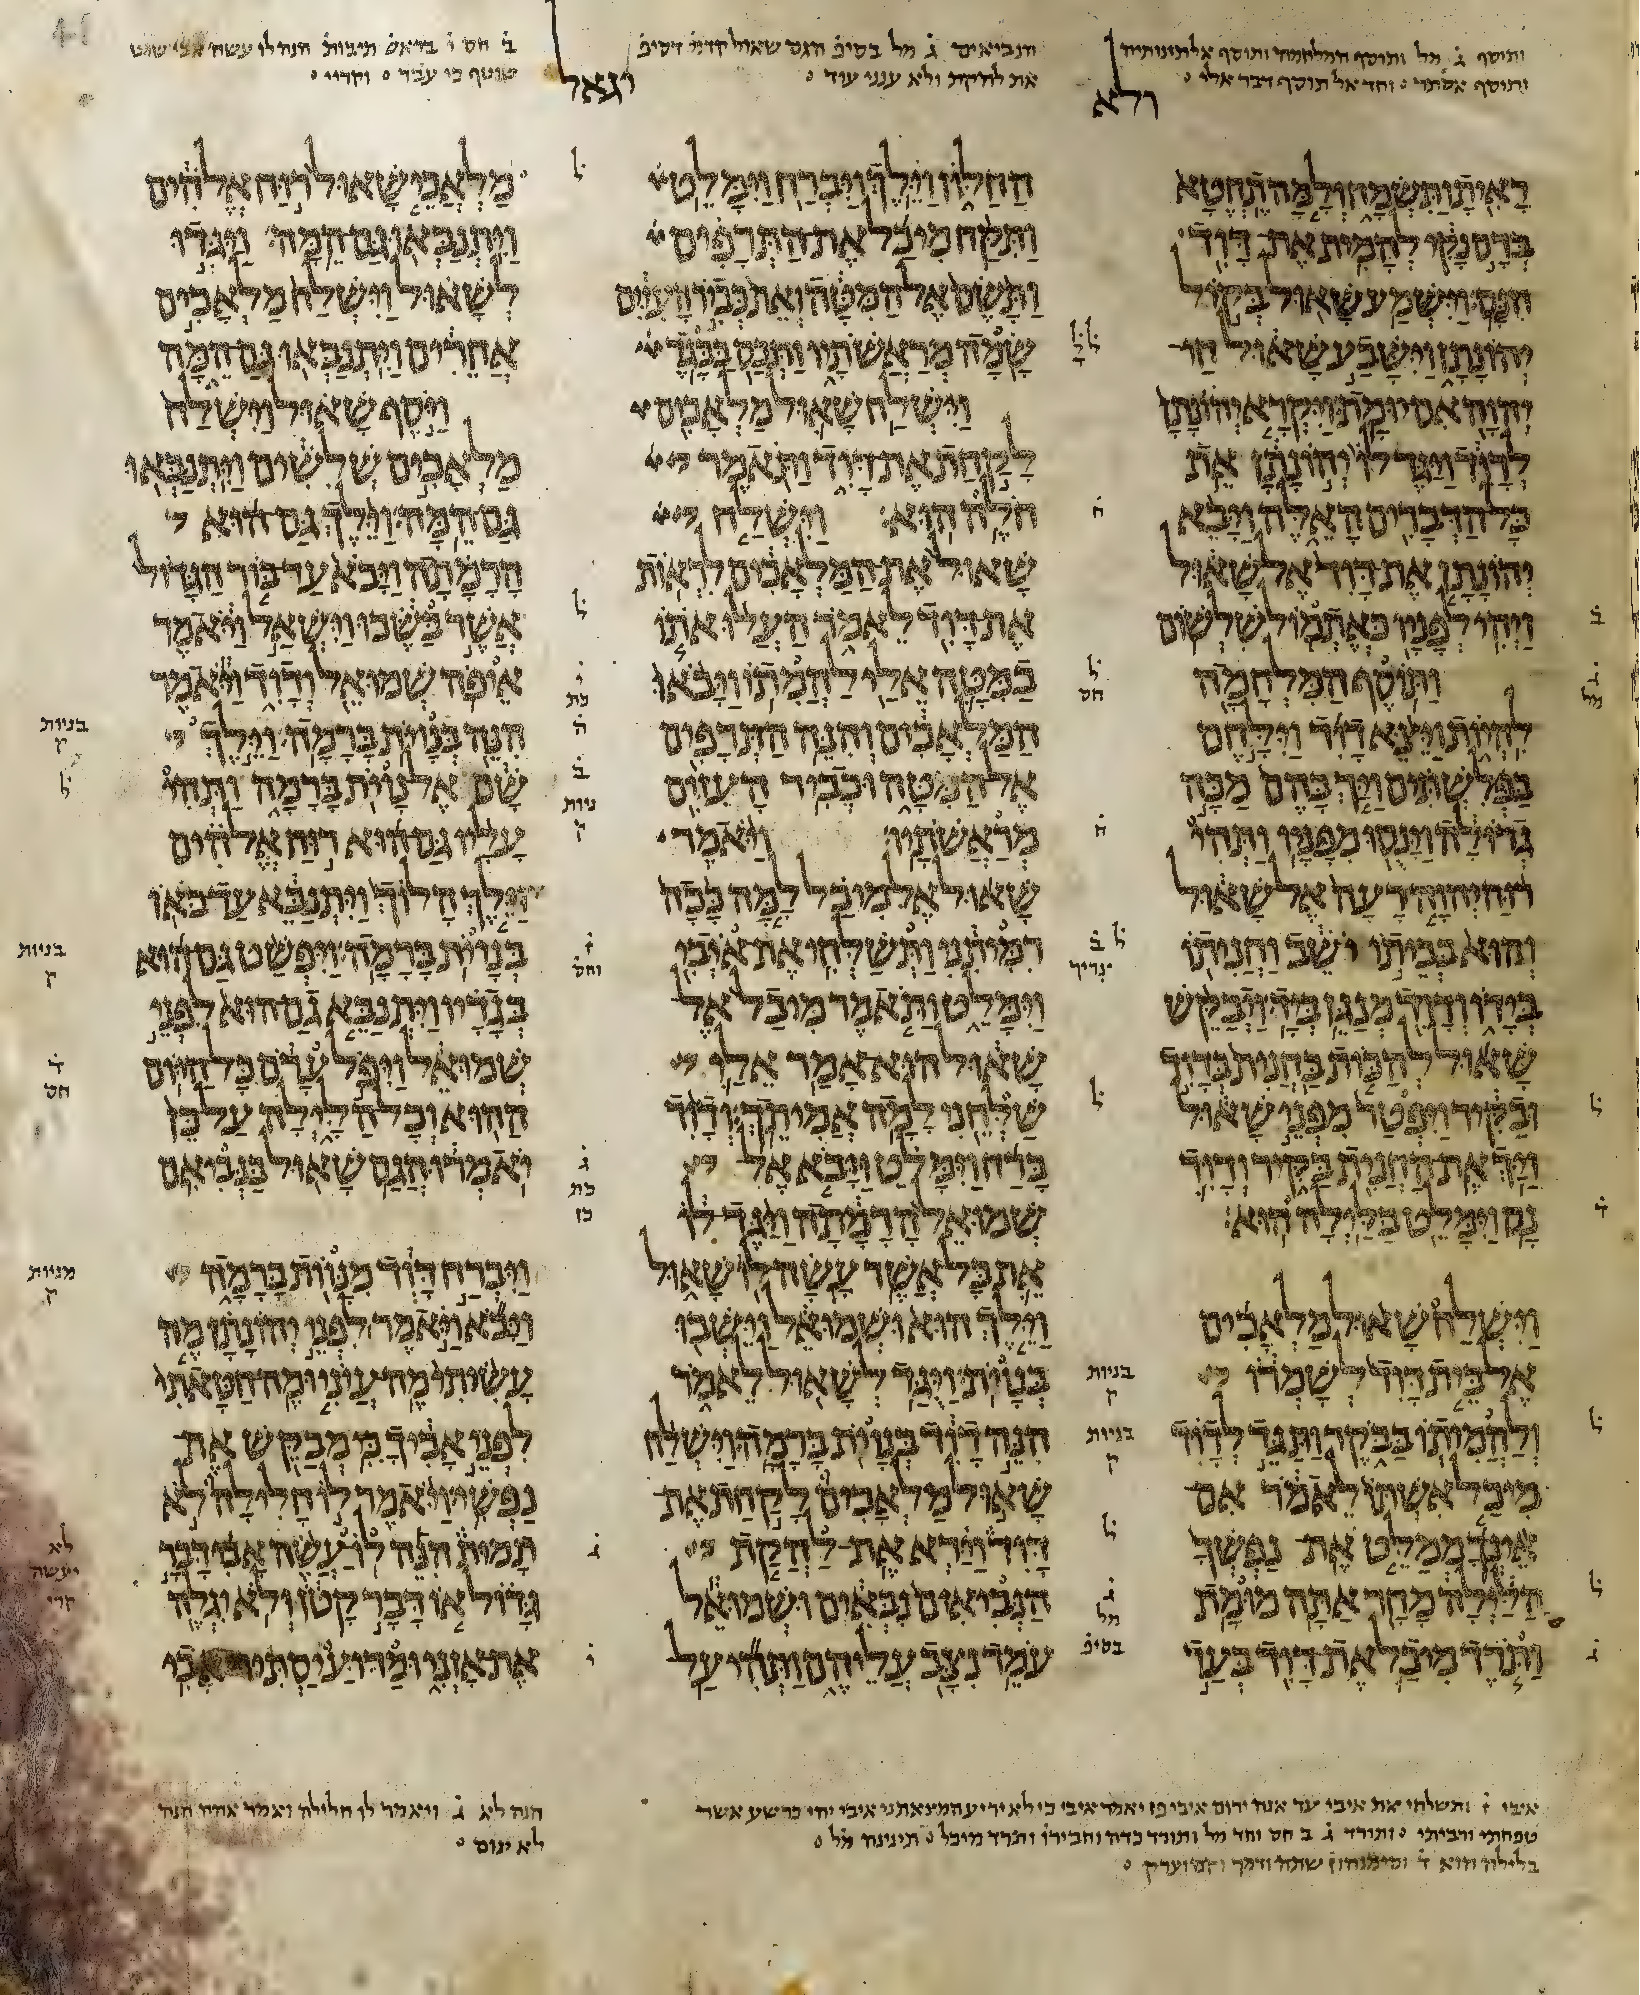 ותוסף ג̇ מל ותוסף המלחמה ותוסף אל תזנותיה
ותוסף אסתר וחד אל תוסף דבר אלי
הנביאים ג̇ מל בסיפ הגם שאול קדמ דסיפ
את להקת ולא ענני עוד
ולא
ויגאל
ראית ותשמח ולמה תחטא
בדם נקי להמית את דוד
חנם׃ וישמע שאול בקול
יהונתן וישבע שאול חי
יהוה אם יומת׃ ויקרא יהונתן
לדוד ויגד לו יהונתן את
כל הדברים האלה ויבא
יהונתן את דוד אל שאול
ויהי לפניו כאתמול שלשום׃
ותוסף המלחמה
להיות ויצא דוד וילחם
בפלשתים ויך בהם מכה
גדולה וינסו מפניו׃ ותהי
רוח יהוה רעה אל שאול
והוא בביתו יושב וחניתו
בידו ודוד מנגן ביד׃ ויבקש
שאול להכות בחנית בדוד
ובקיר ויפטר מפני שאול
ויך את החנית בקיר ודוד
נס וימלט בלילה הוא׃
וישלח שאול מלאכים
אל בית דוד לשמרו
ולהמיתו בבקר ותגד לדוד
מיכל אשתו לאמר אם
אינך ממלט את נפשך
הלילה מחר אתה מומת׃
ותרד מיכל את דוד בעד
החלון וילך ויברח וימלט׃
ותקח מיכל את התרפים
ותשם אל המטה ואת כביר העזים
שמה מראשתיו ותכס בבגד׃
וישלח שאול מלאכים
לקחת את דוד ותאמר
חלה הוא׃ וישלח
שאול את המלאכים לראות
את דוד לאמר העלו אתו
במטה אלי להמתו׃ ויבאו
המלאכים והנה התרפים
אל המטה וכביר העזים
מראשתיו׃ ויאמר
שאול אל מיכל למה ככה
רמיתני ותשלחי את איבי
וימלט ותאמר מיכל אל
שאול הוא אמר אלי
שלחני למה אמיתך׃ ודוד
ברח וימלט ויבא אל
שמואל הרמתה ויגד לו
את כל אשר עשה לו שאול
וילך הוא ושמואל וישבו
בנוית׃ ויגד לשאול לאמר
הנה דוד בנוית ברמה׃ וישלח
שאול מלאכים לקחת את
דוד וירא את להקת
הנביאים נבאים ושמואל
עמד נצב עליהם ותהי על
מלאכי שאול רוח אלהים
ויתנבאו גם המה׃ ויגדו
לשאול וישלח מלאכים
אחרים ויתנבאו גם המה
ויסף שאול וישלח
מלאכים שלשים ויתנבאו
גם המה׃ וילך גם הוא
הרמתה ויבא עד בור הגדול
אשר בשכו וישאל ויאמר
איפה שמואל ודוד ויאמר
הנה בנוית ברמה׃ וילך
שם אל נוית ברמה ותהי
עליו גם הוא רוח אלהים
וילך הלוך ויתנבא עד באו
בנוית ברמה׃ ויפשט גם הוא
בגדיו ויתנבא גם הוא לפני
שמואל ויפל ערם כל היום
ההוא וכל הלילה על כן
יאמרו הגם שאול בנביאם׃
ויברח דוד מנוית ברמה
ויבא ויאמר לפני יהונתן מה
עשיתי מה עוני ומה חטאתי
לפני אביך כי מבקש את
נפשי׃ ויאמר לו חלילה לא
תמות הנה לו עשה אבי דבר
גדול או דבר קטן ולא יגלה
את אזני ומדוע יסתיר אבי
בניות
ק
בניות
ק
ניות
ק
בניות
ק
בניות
ק
מניות
ק
לא
יעשה
קרי
איבי ז̇ ותשלחי את איבי עד אנה ירום איבי פן יאמר איבי כי לא יריע המצאתני איבי יהי כרשע אשר
טפחתי ורביתי ותורד ג̇ ב חס וחד מל ותורד כדה וחבירו ותרד מיכל תינינה מל
בלילה הוא
הנה לא ג̇ ויאמר לו חלילה ואמר אהה הנה
לא ינום